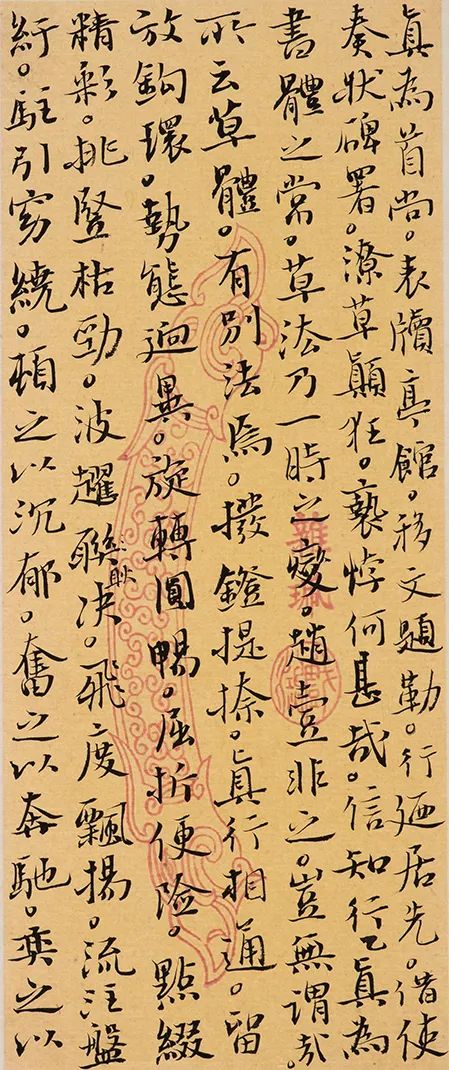 眞為首尚。表牘亭館。移文題勒。行廼居先。借使
奏狀碑署。潦草顛狂。褻悖何甚哉。信知行眞為
書體之常。草法乃一時之變。趙壹非之。豈無謂哉。
所云草體。有別法焉。撥鐙提捺。眞行相通。留
放鈎環。勢態迥異。旋轉圓暢。屈折便險。點綴
精彩。挑豎枯勁。波趯聯耿决。飛度飄揚。流注盤
紆。駐引窈繞。頓之以沉郁。奮之以奔馳。奕之以